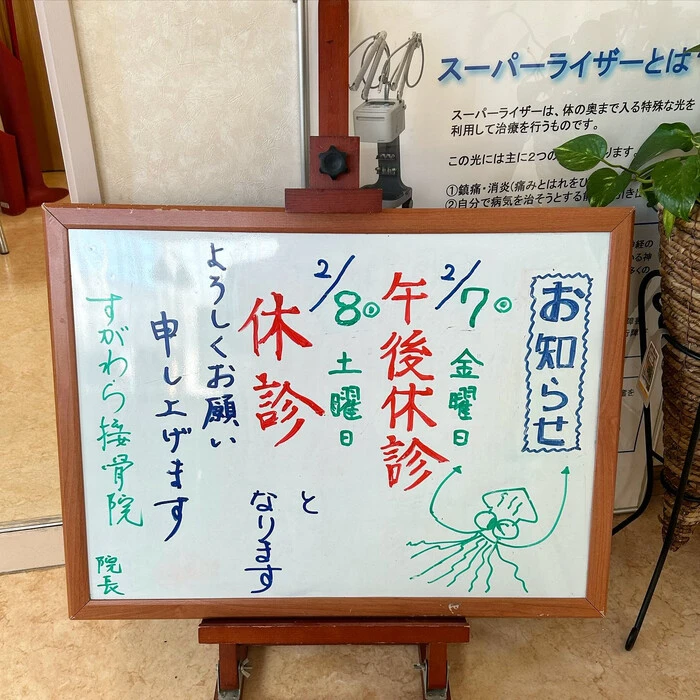 お知らせ
2/7(金曜日
午後休診
2/8(土曜日
休診
となります
よろしくお願い
申し上げます
すがわら接骨院
院長
スーパーライザーとは?
スーパーライザーは、体の奥まで入る特殊な光を
利用して治療を行うものです。
この光には主に2つの
ります。
①鎮痛・消炎(痛みとはれをひ
②自分で病気を治そうとする